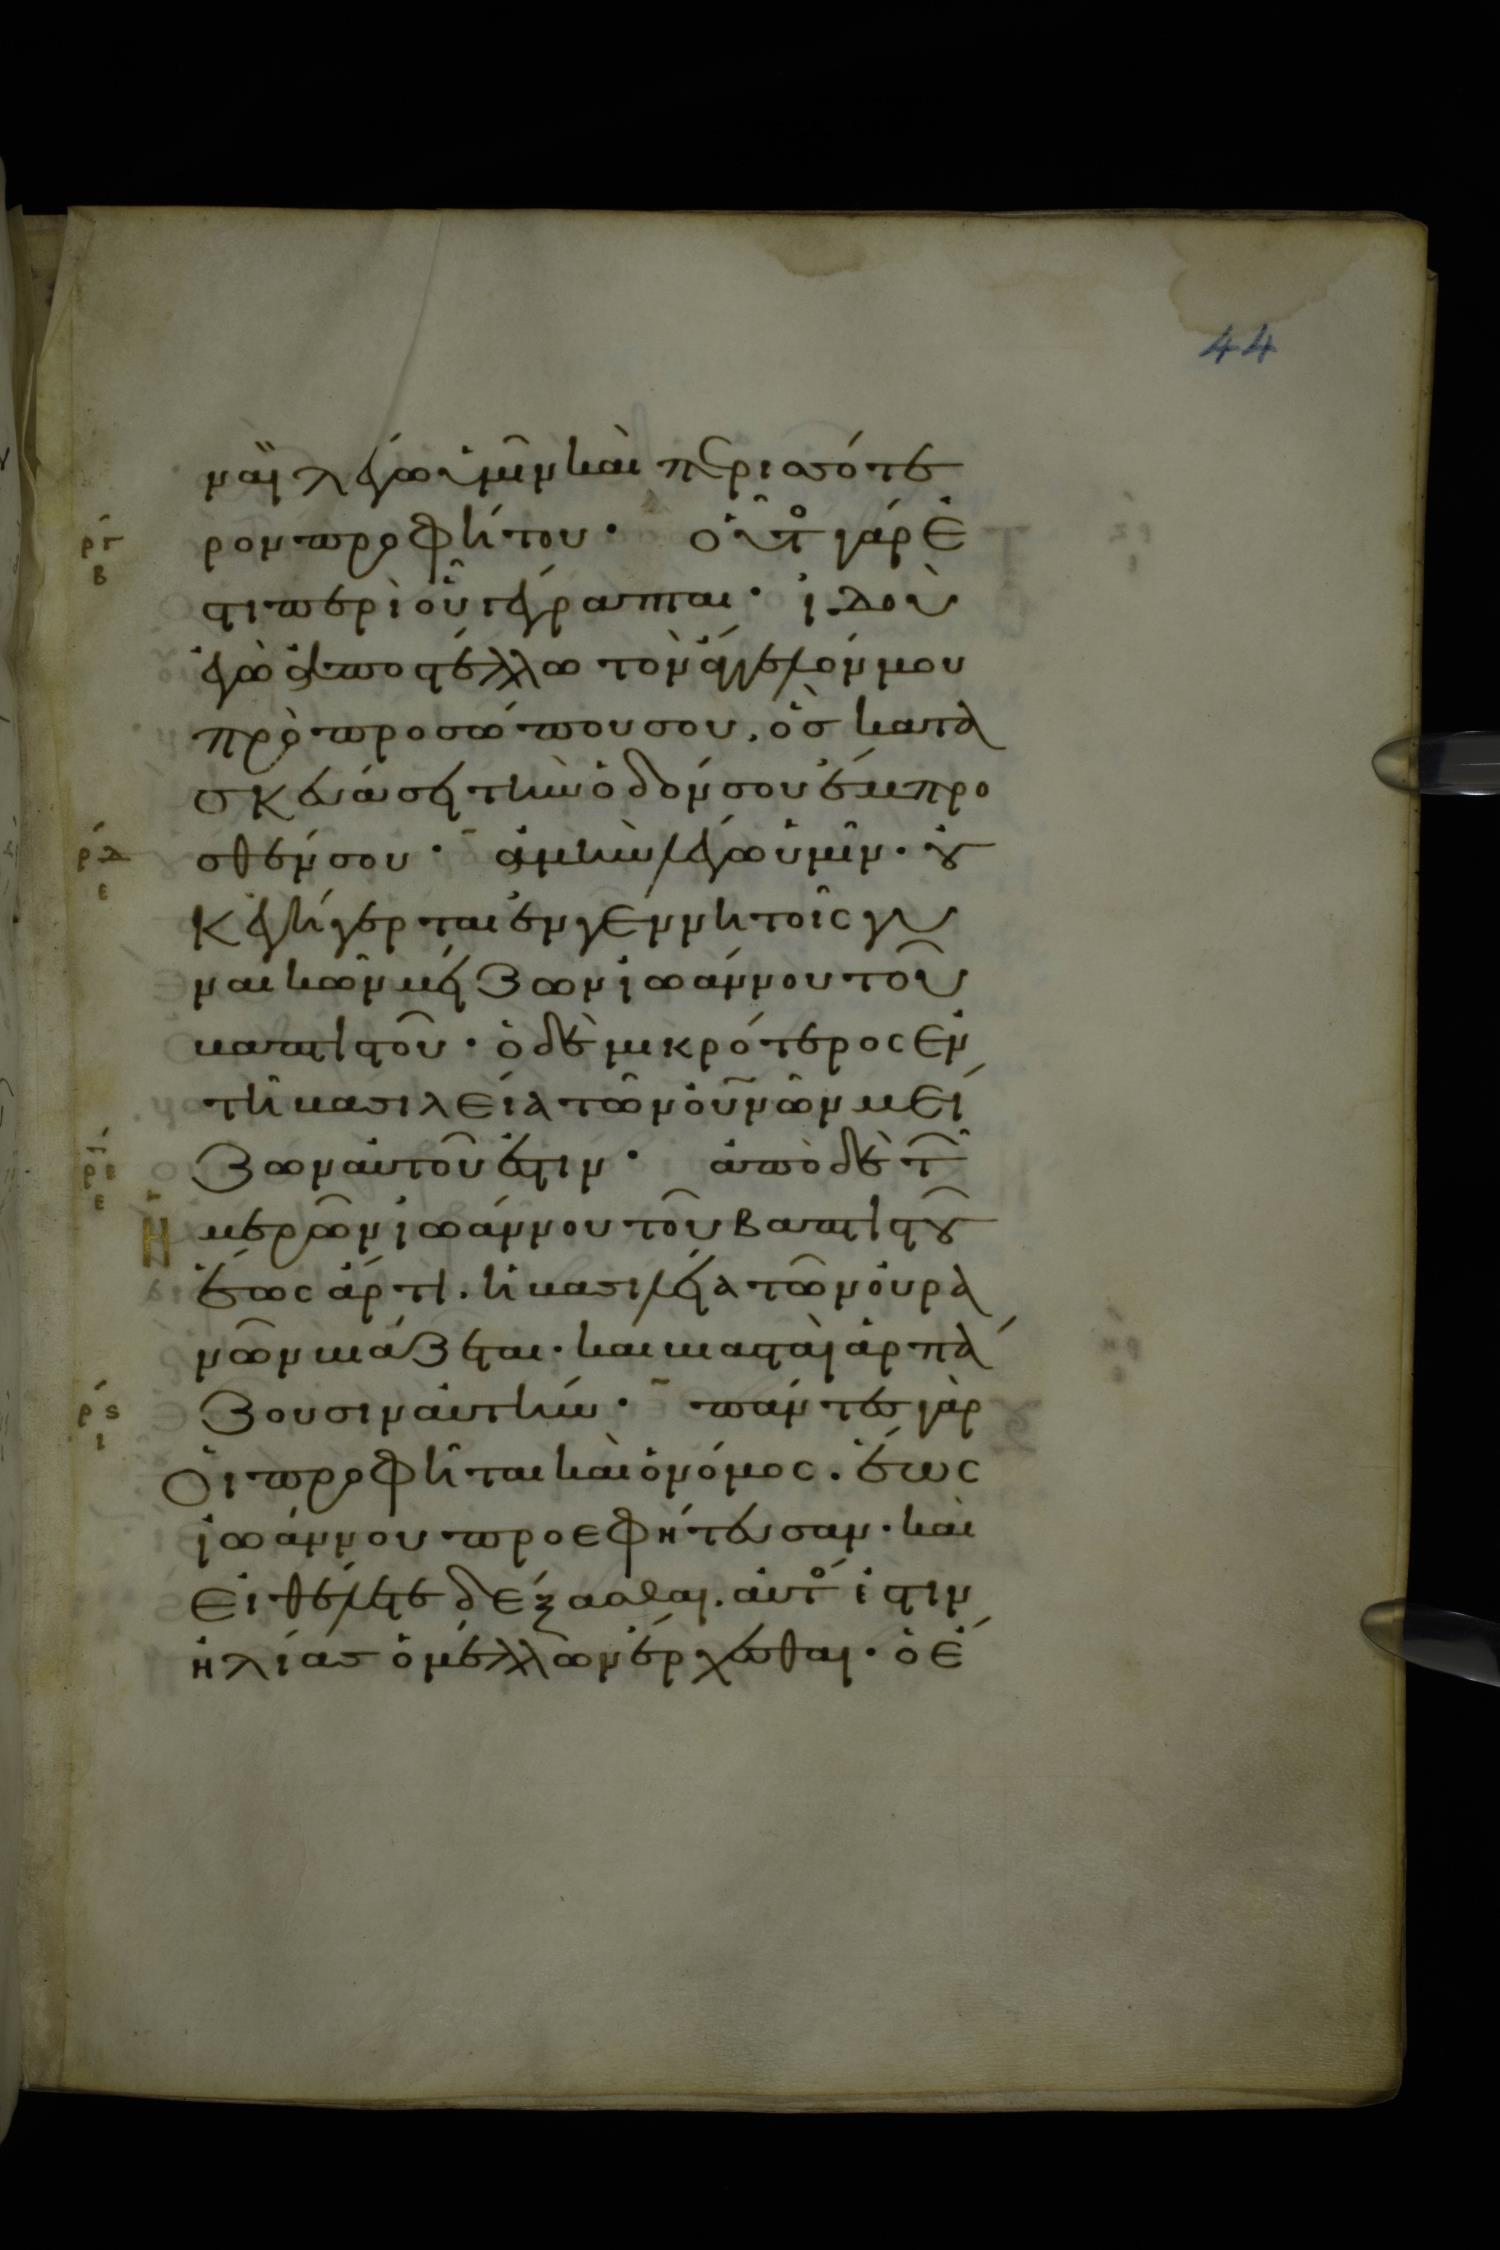 44
ναὶ λέγω ὑμῖν καὶ περισσότε
ργ
β
ρον προφήτου· οὗτο γάρ ἐ
στι περὶ οὗ γέγραπται· ἰδοὺ
ἐγὼ ἀποστέλλω τὸν ἄγγελόν μου
πρὸ προσώπου σου, ὃσ κατα
σκευάσει τὴν ὁδόν σου ἔμπρο
ρδ
ε
σθέν σου· ἀμὴν λέγω ὑμῖν· οὐ
κ ἐγήγερται ἐν γεννητοῖς γυ
ναικῶν μείζων ἰωάννου τοῦ
βαπτιστοῦ· ὁ δὲ μικρότερος ἐν
τῆ βασιλεία τῶν οὐνῶν μεί
ρε
ε
ζων αὐτοῦ ἐστιν· ἀπὸ δὲ τῶ
Η μερῶν ἰωάννου τοῦ βαπτιστοῦ
ἕως ἄρτι. ἡ βασιλεία τῶν οὐρα
νῶν βιάζεται· καὶ βιασταὶ ἁρπά
ρϛ
ι
ζουσιν αὐτήν· πάντες γὰρ
οἱ προφῆται καὶ ὁ νόμος. ἕως
ἰωάννου προεφήτευσαν· καὶ
εἰ θέλετε δέξασθαι. αὐτό ἐστιν
ἠλίασ ὁ μέλλων ἔρχεσθαι· ὁ ἔ